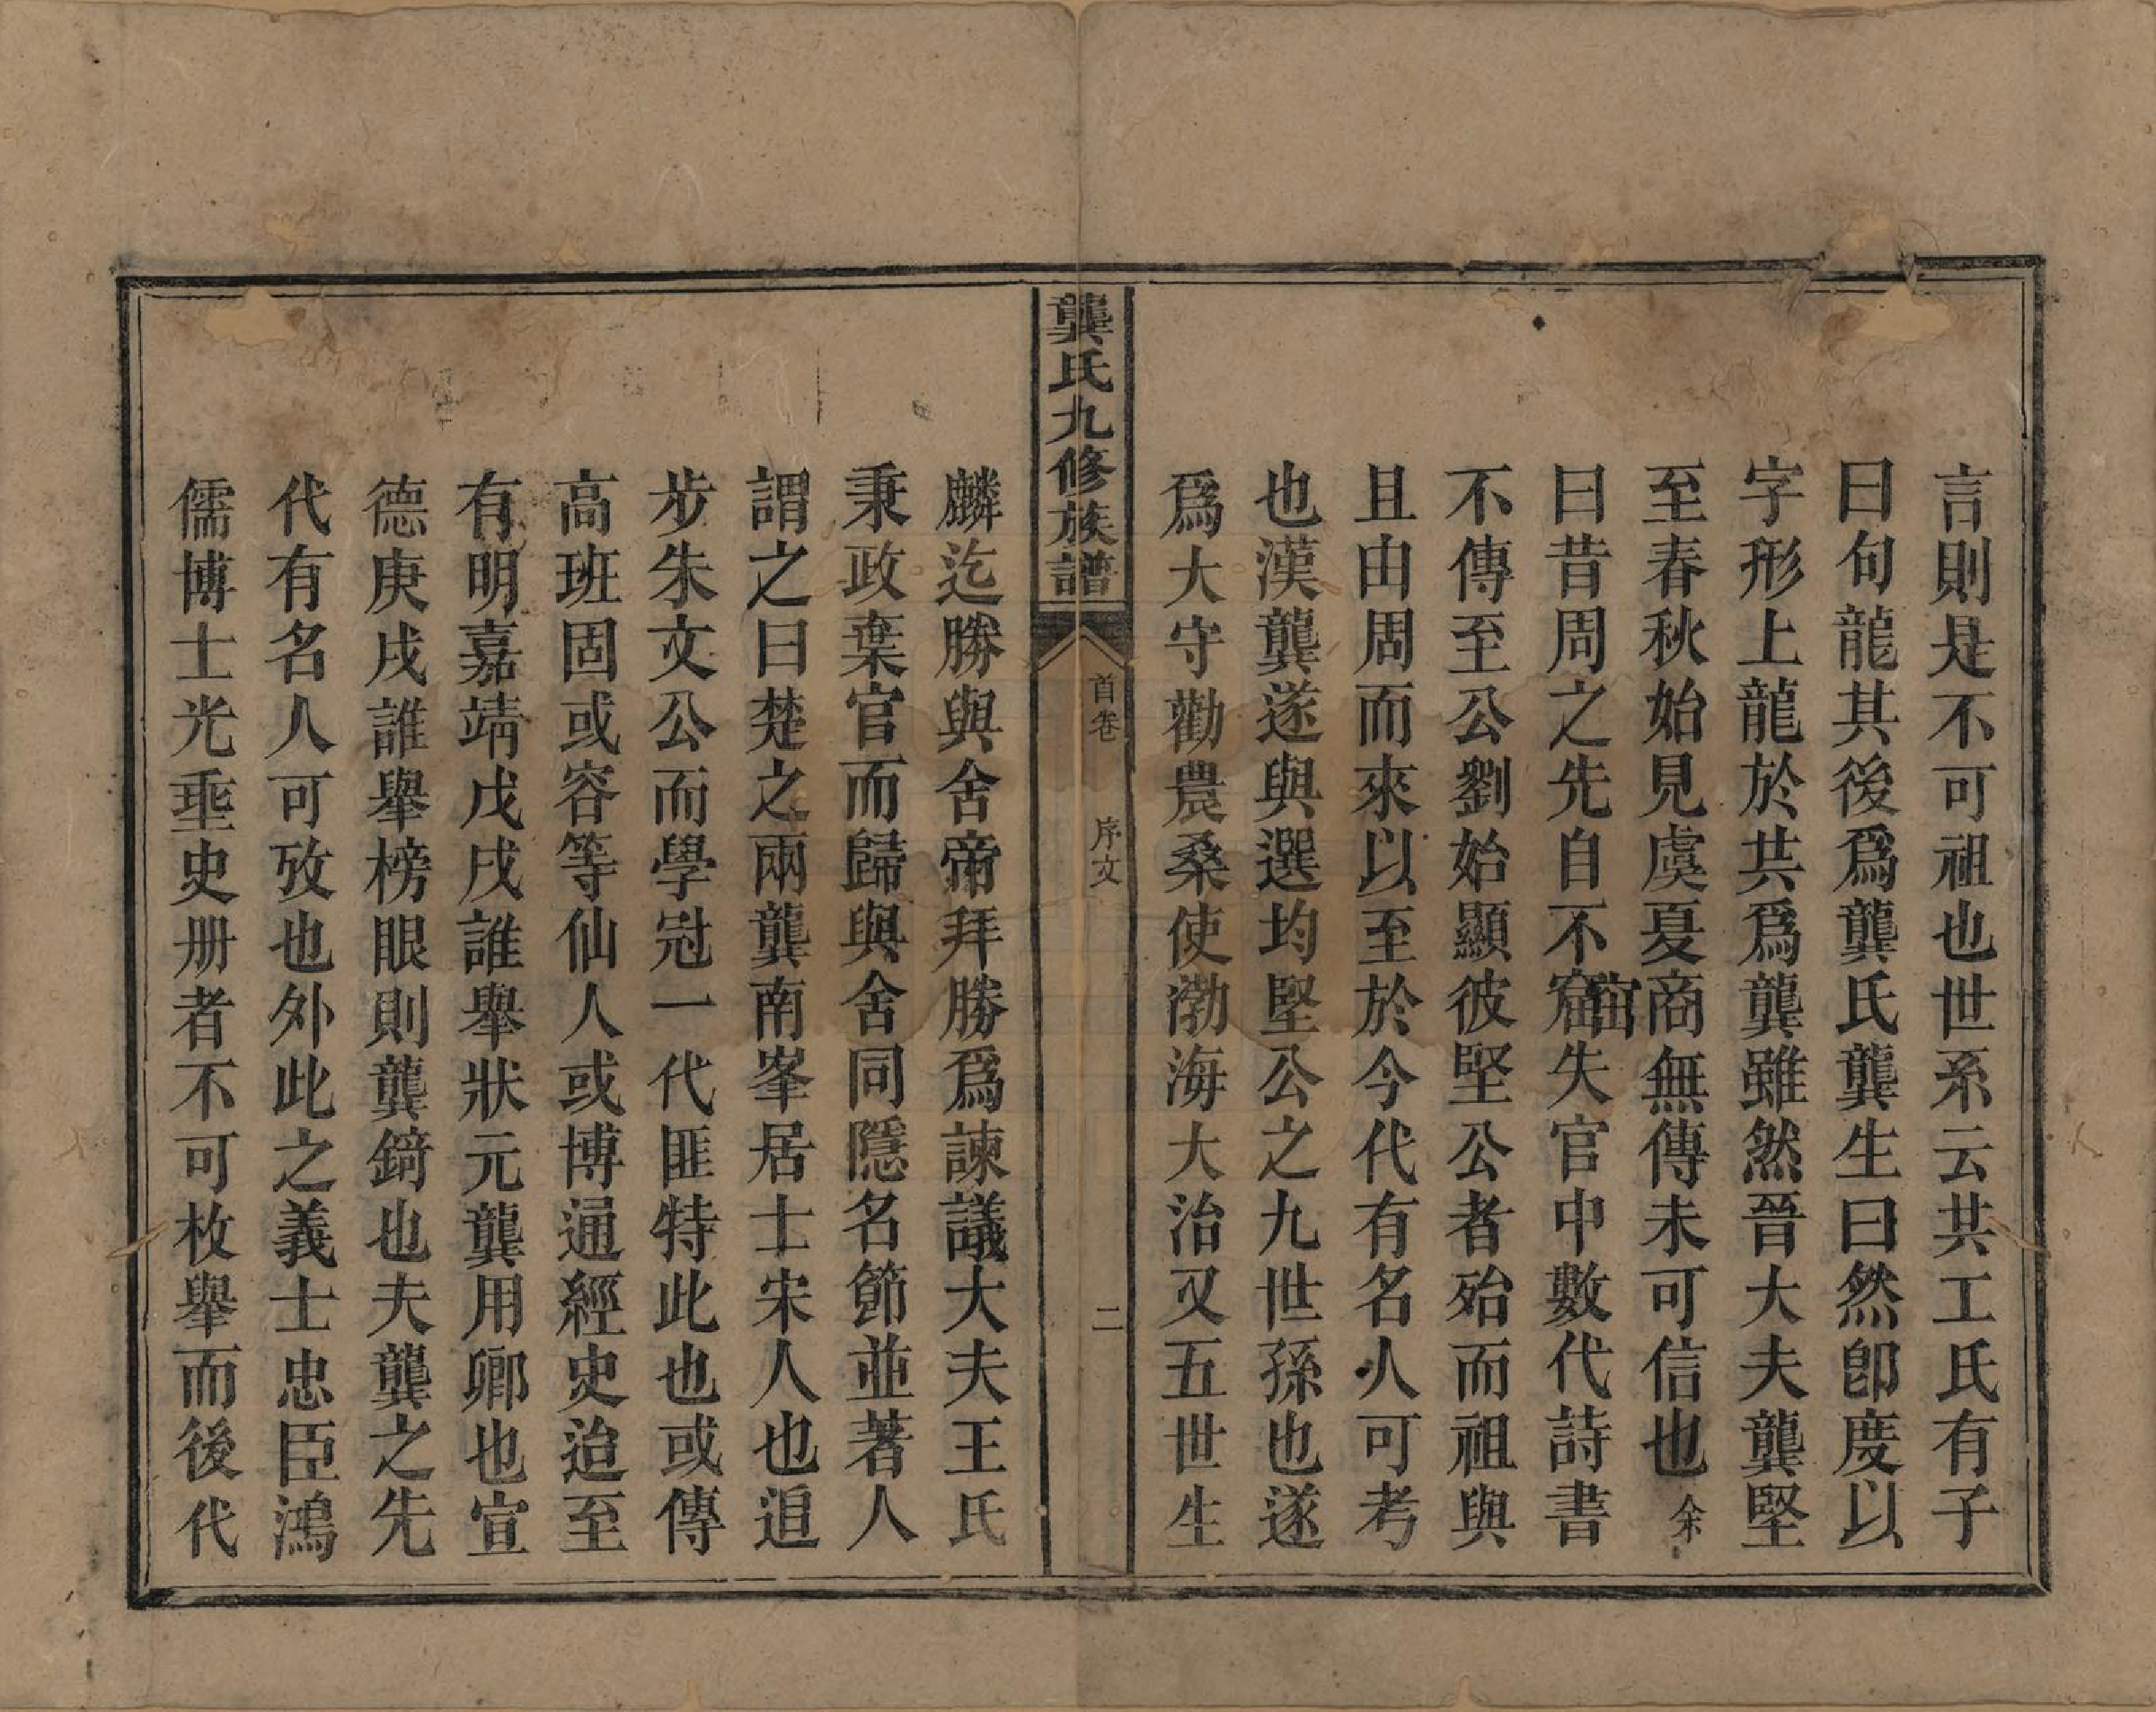 言則是不可祖也世系云共工氏有子
曰句龍其後爲龔氏龔生曰然卽度以
字形上龍於共爲龔雖然晉大夫龔堅
至春秋始見虞夏商無傳未可信也余
曰昔周之先自不窟窋失官中數代詩書
不傳至公劉始顯彼堅公者殆而祖與
且由周而來以至於今代有名人可考
也漢龔遂與選均堅公之九世孫也遂
爲大守勸農桑使渤海大治又五世生
龔氏九修族譜
首卷
序文
二
麟迄勝與舍帝拜勝爲諫議大夫王氏
秉政棄官而歸與舍同隱名節並著人
謂之曰楚之兩龔南峯居士宋人也追
步朱文公而學冠一代匪特此也或傳
高班固或容等仙人或博通經史迨至
有明嘉靖戊戌誰舉狀元龔用卿也宣
德庚戌誰舉榜眼則龔錡也夫龔之先
代有名人可攷也外此之義士忠臣鴻
儒博士光埀史册者不可枚舉而後代